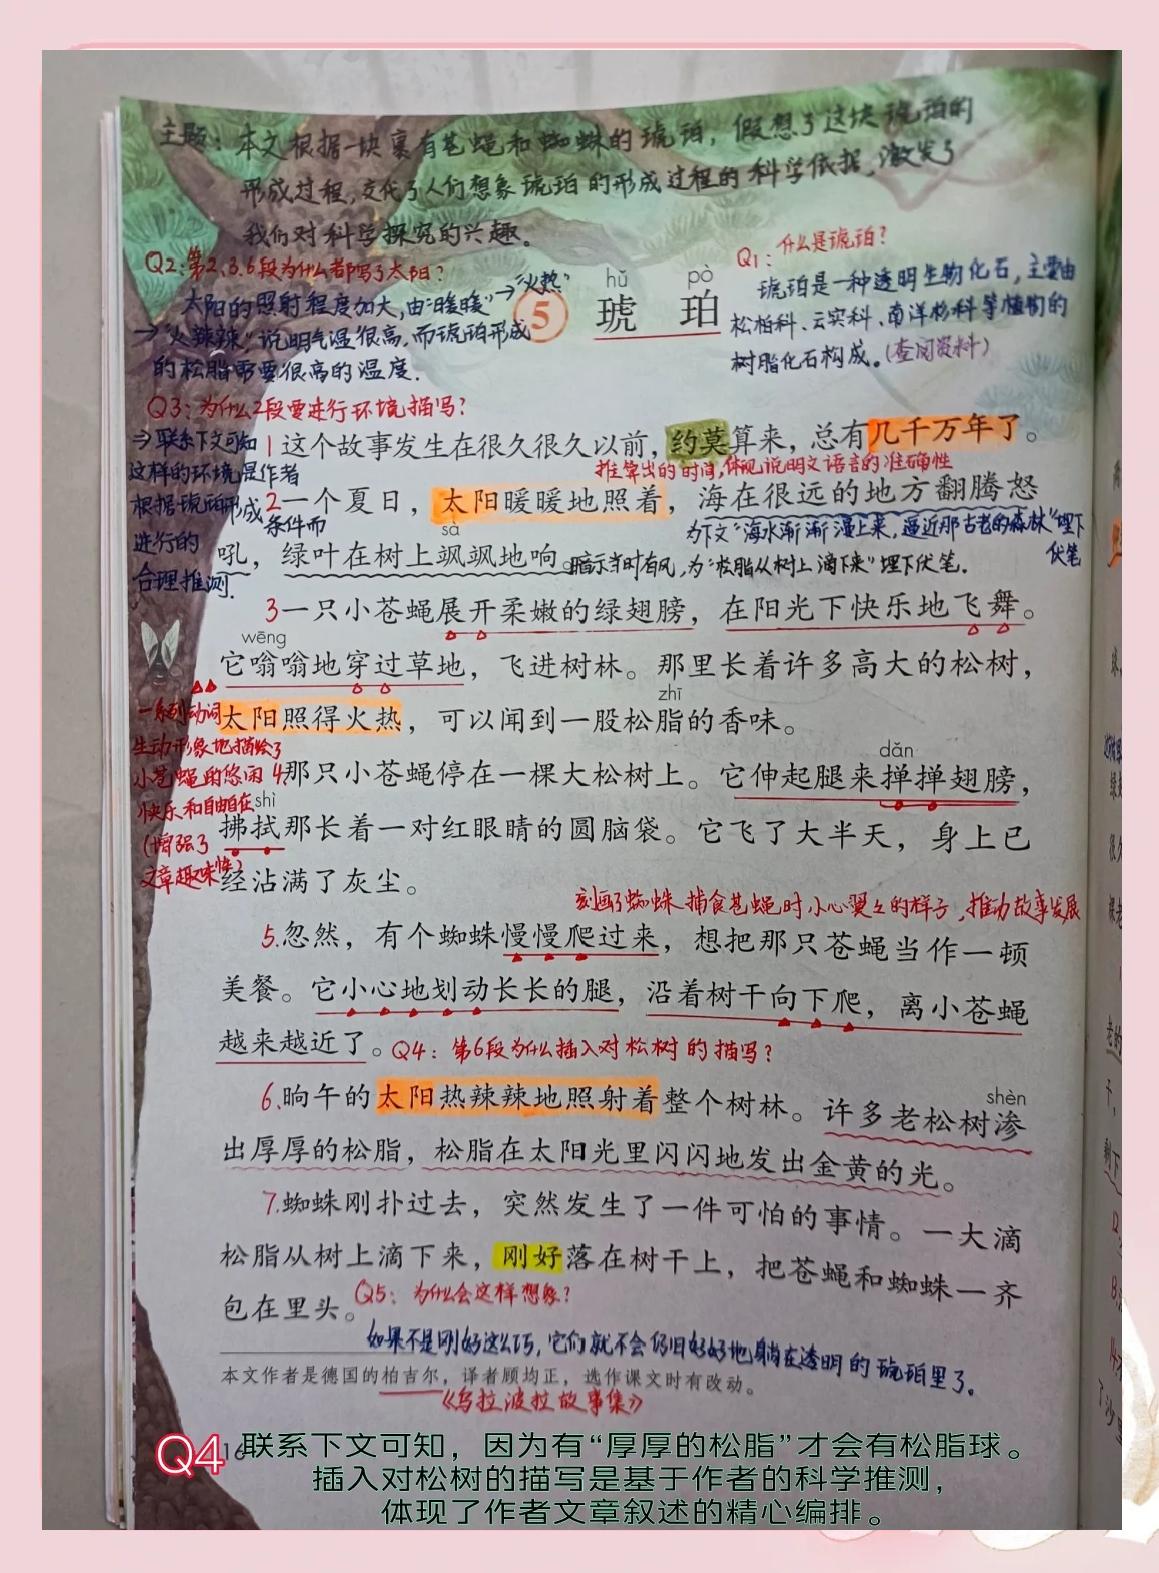 主题：本文根据一块裹有苍蝇和蜘蛛的琥珀，假想了这块琥珀的
形成过程，交代了人们想象琥珀的形成过程的科学依据，激发了
我们对科学探究的兴趣。
Q2：第2、3、6段为什么都写了太阳？
太阳的照射程度加大，由“暖暖”→“火热”
→“火辣辣”说明气温很高，而琥珀形成
的松脂需要很高的温度.
Q1：什么是琥珀？
琥珀是一种透明生物化石，主要由
松柏科、云实科、南洋杉科等植物的
树脂化石构成。(查阅资料)
hǔ pò
5 琥 珀
Q3：为什么2段要进行环境描写？
⇒联系下文可知
这样的环境是作者
根据琥珀形成
条件而
进行的
合理推测.
1这个故事发生在很久很久以前，约莫算来，总有几千万年了。
推算出的时间,体现说明文语言的准确性
2一个夏日，太阳暖暖地照着，海在很远的地方翻腾怒
sà
为下文“海水渐渐漫上来，逼近那古老的森林”埋下
伏笔
吼，绿叶在树上飒飒地响。
暗示当时有风，为“松脂从树上滴下来”埋下伏笔.
3一只小苍蝇展开柔嫩的绿翅膀，在阳光下快乐地飞舞。
wēng
它嗡嗡地穿过草地，飞进树林。那里长着许多高大的松树，
zhī
太阳照得火热，可以闻到一股松脂的香味。
一系列动词
生动形象地描绘了
小苍蝇的悠闲
快乐和自由自在
(增强了
文章趣味性)
dǎn
4.那只小苍蝇停在一棵大松树上。它伸起腿来掸掸翅膀，
shì
拂拭那长着一对红眼睛的圆脑袋。它飞了大半天，身上已
经沾满了灰尘。
刻画了蜘蛛捕食苍蝇时小心翼翼的样子，推动故事发展
5.忽然，有个蜘蛛慢慢爬过来，想把那只苍蝇当作一顿
美餐。它小心地划动长长的腿，沿着树干向下爬，离小苍蝇
越来越近了。
Q4：第6段为什么插入对松树的描写？
6.晌午的太阳热辣辣地照射着整个树林。许多老松树渗
shèn
出厚厚的松脂，松脂在太阳光里闪闪地发出金黄的光。
7.蜘蛛刚扑过去，突然发生了一件可怕的事情。一大滴
松脂从树上滴下来，刚好落在树干上，把苍蝇和蜘蛛一齐
包在里头。
Q5：为什么会这样想象？
如果不是刚好这么巧，它们就不会仍旧好好地躺在透明的琥珀里了。
本文作者是德国的柏吉尔，译者顾均正，选作课文时有改动。
《乌拉波拉故事集》
16
Q4 联系下文可知，因为有“厚厚的松脂”才会有松脂球。
插入对松树的描写是基于作者的科学推测，
体现了作者文章叙述的精心编排。